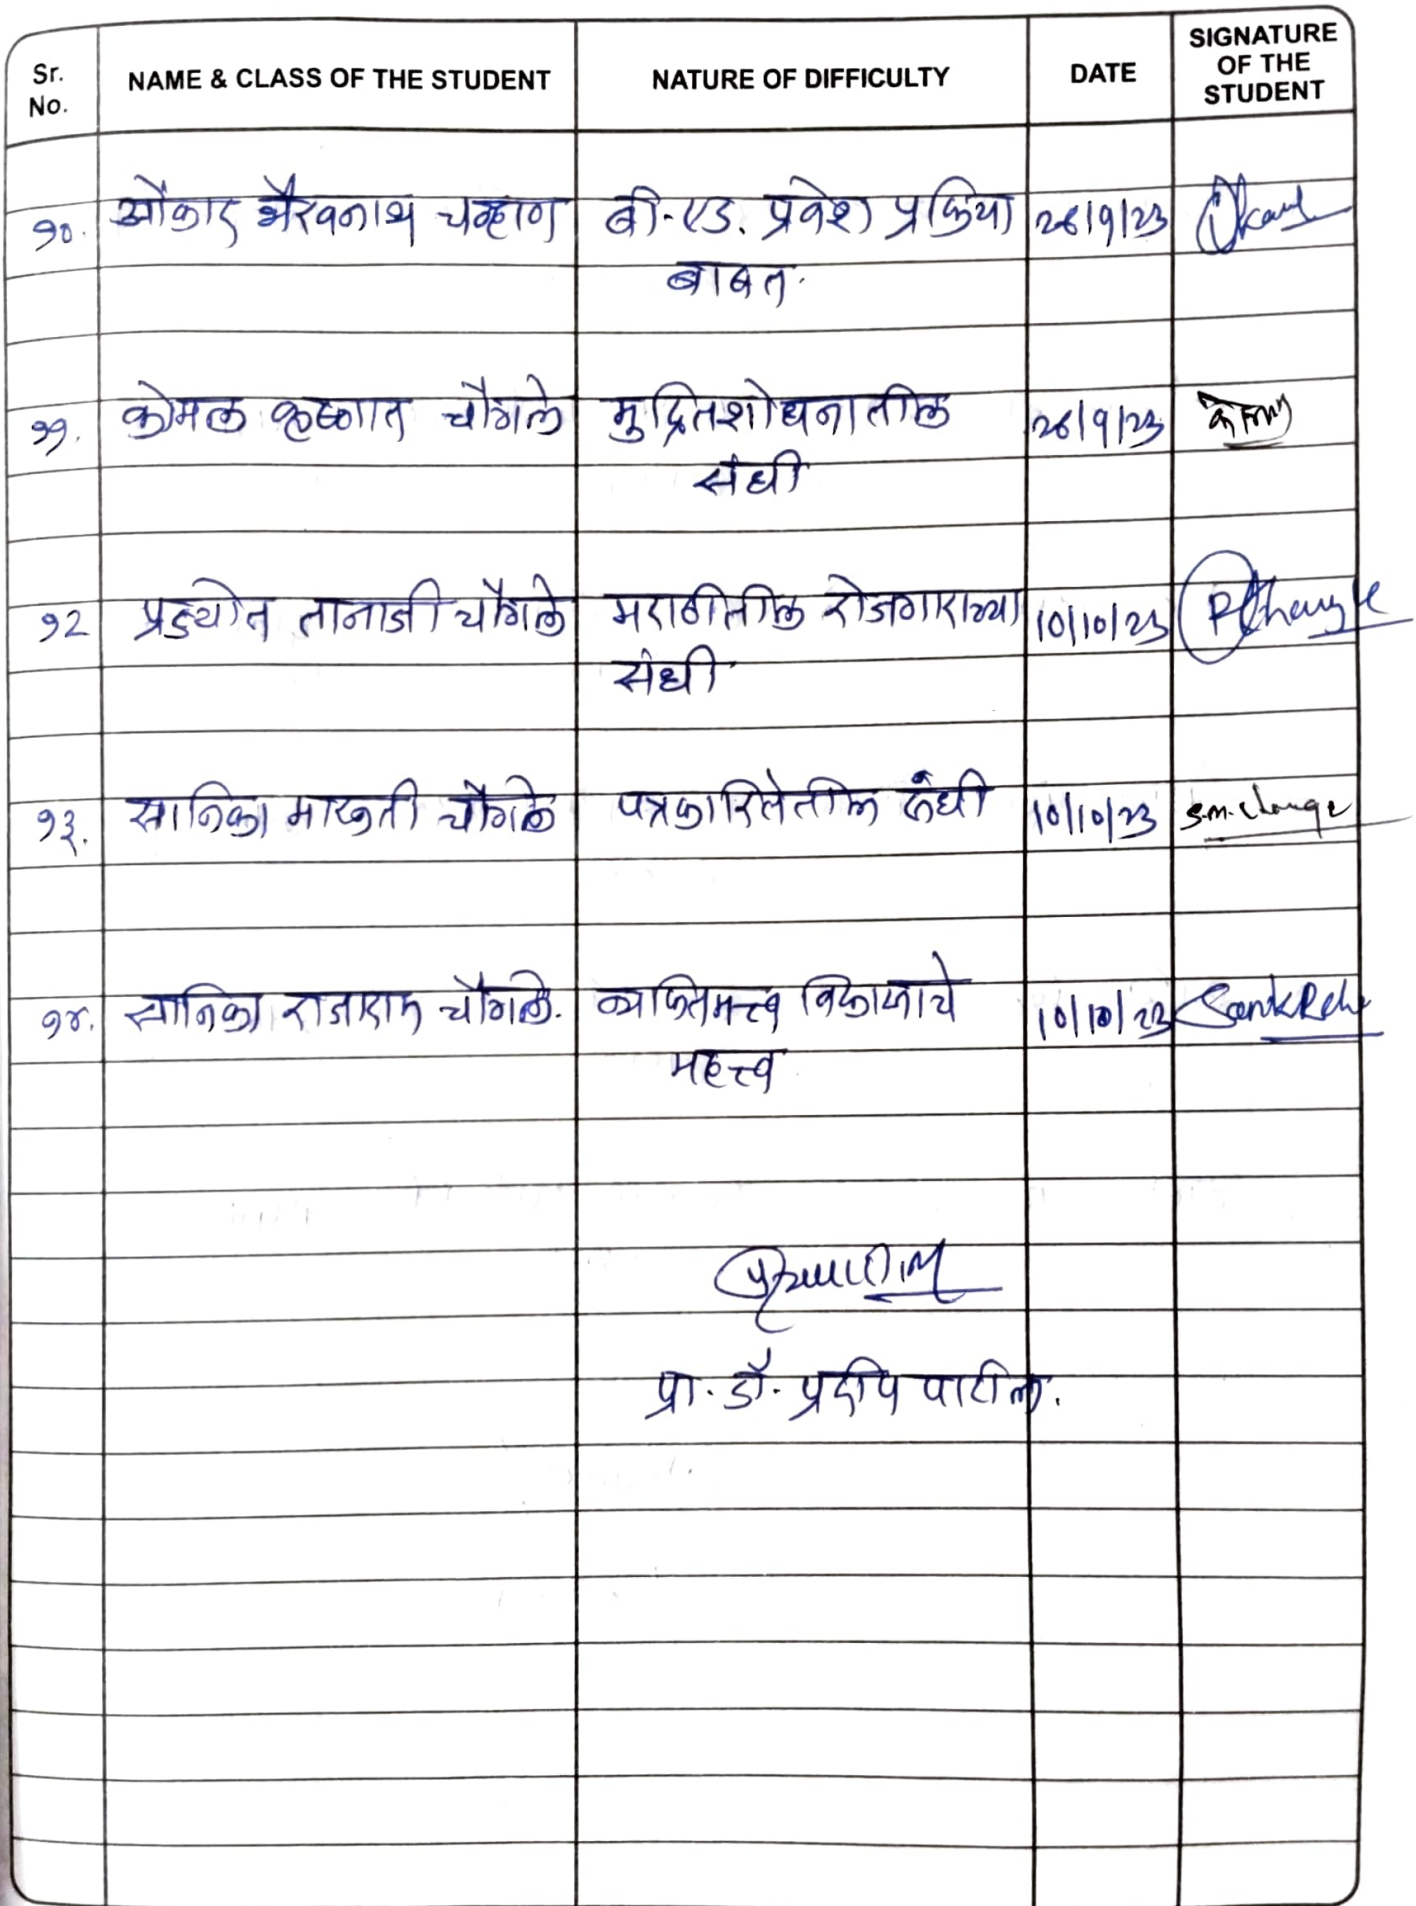 Sr. No. NAME & CLASS OF THE STUDENT NATURE OF DIFFICULTY DATE SIGNATURE OF THE STUDENT
१०. ओंकार भैरवनाथ चव्हाण बी.एड. प्रवेश प्रक्रिया 26/9/23
बाबत.
११. कोमल कृष्णात चौगले मुद्रितशोधनातील 26/9/23 कोमल
संधी
१२ प्रद्योत तानाजी चौगले मराठीतील रोजगाराच्या 10/10/23
संधी
१३. सानिका मारुती चौगले पत्रकारितेतील संधी 10/10/23
१४. सानिका राजाराम चौगले. व्यक्तिमत्त्व विकासाचे 10/10/23
महत्त्व
प्रा. डॉ. प्रदीप पाटील.